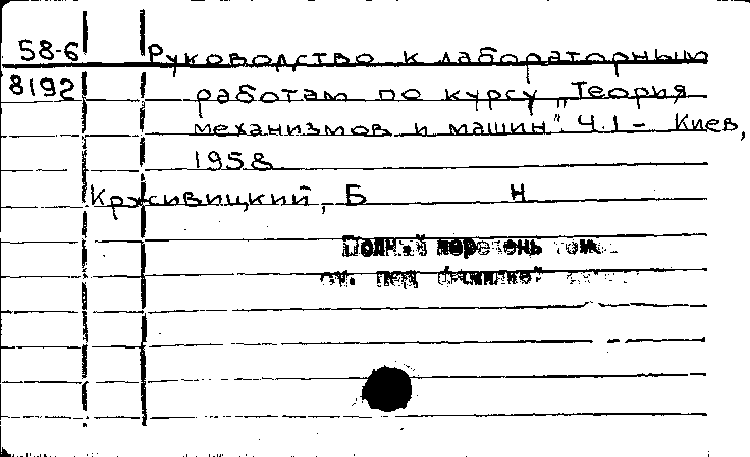 58-6 Руководство к лабораторным
8192 работам по курсу „Теория
механизмов и машин". Ч.1 - Киев,
1958
Крживицкий, Б Н
Полный перечень
см. под